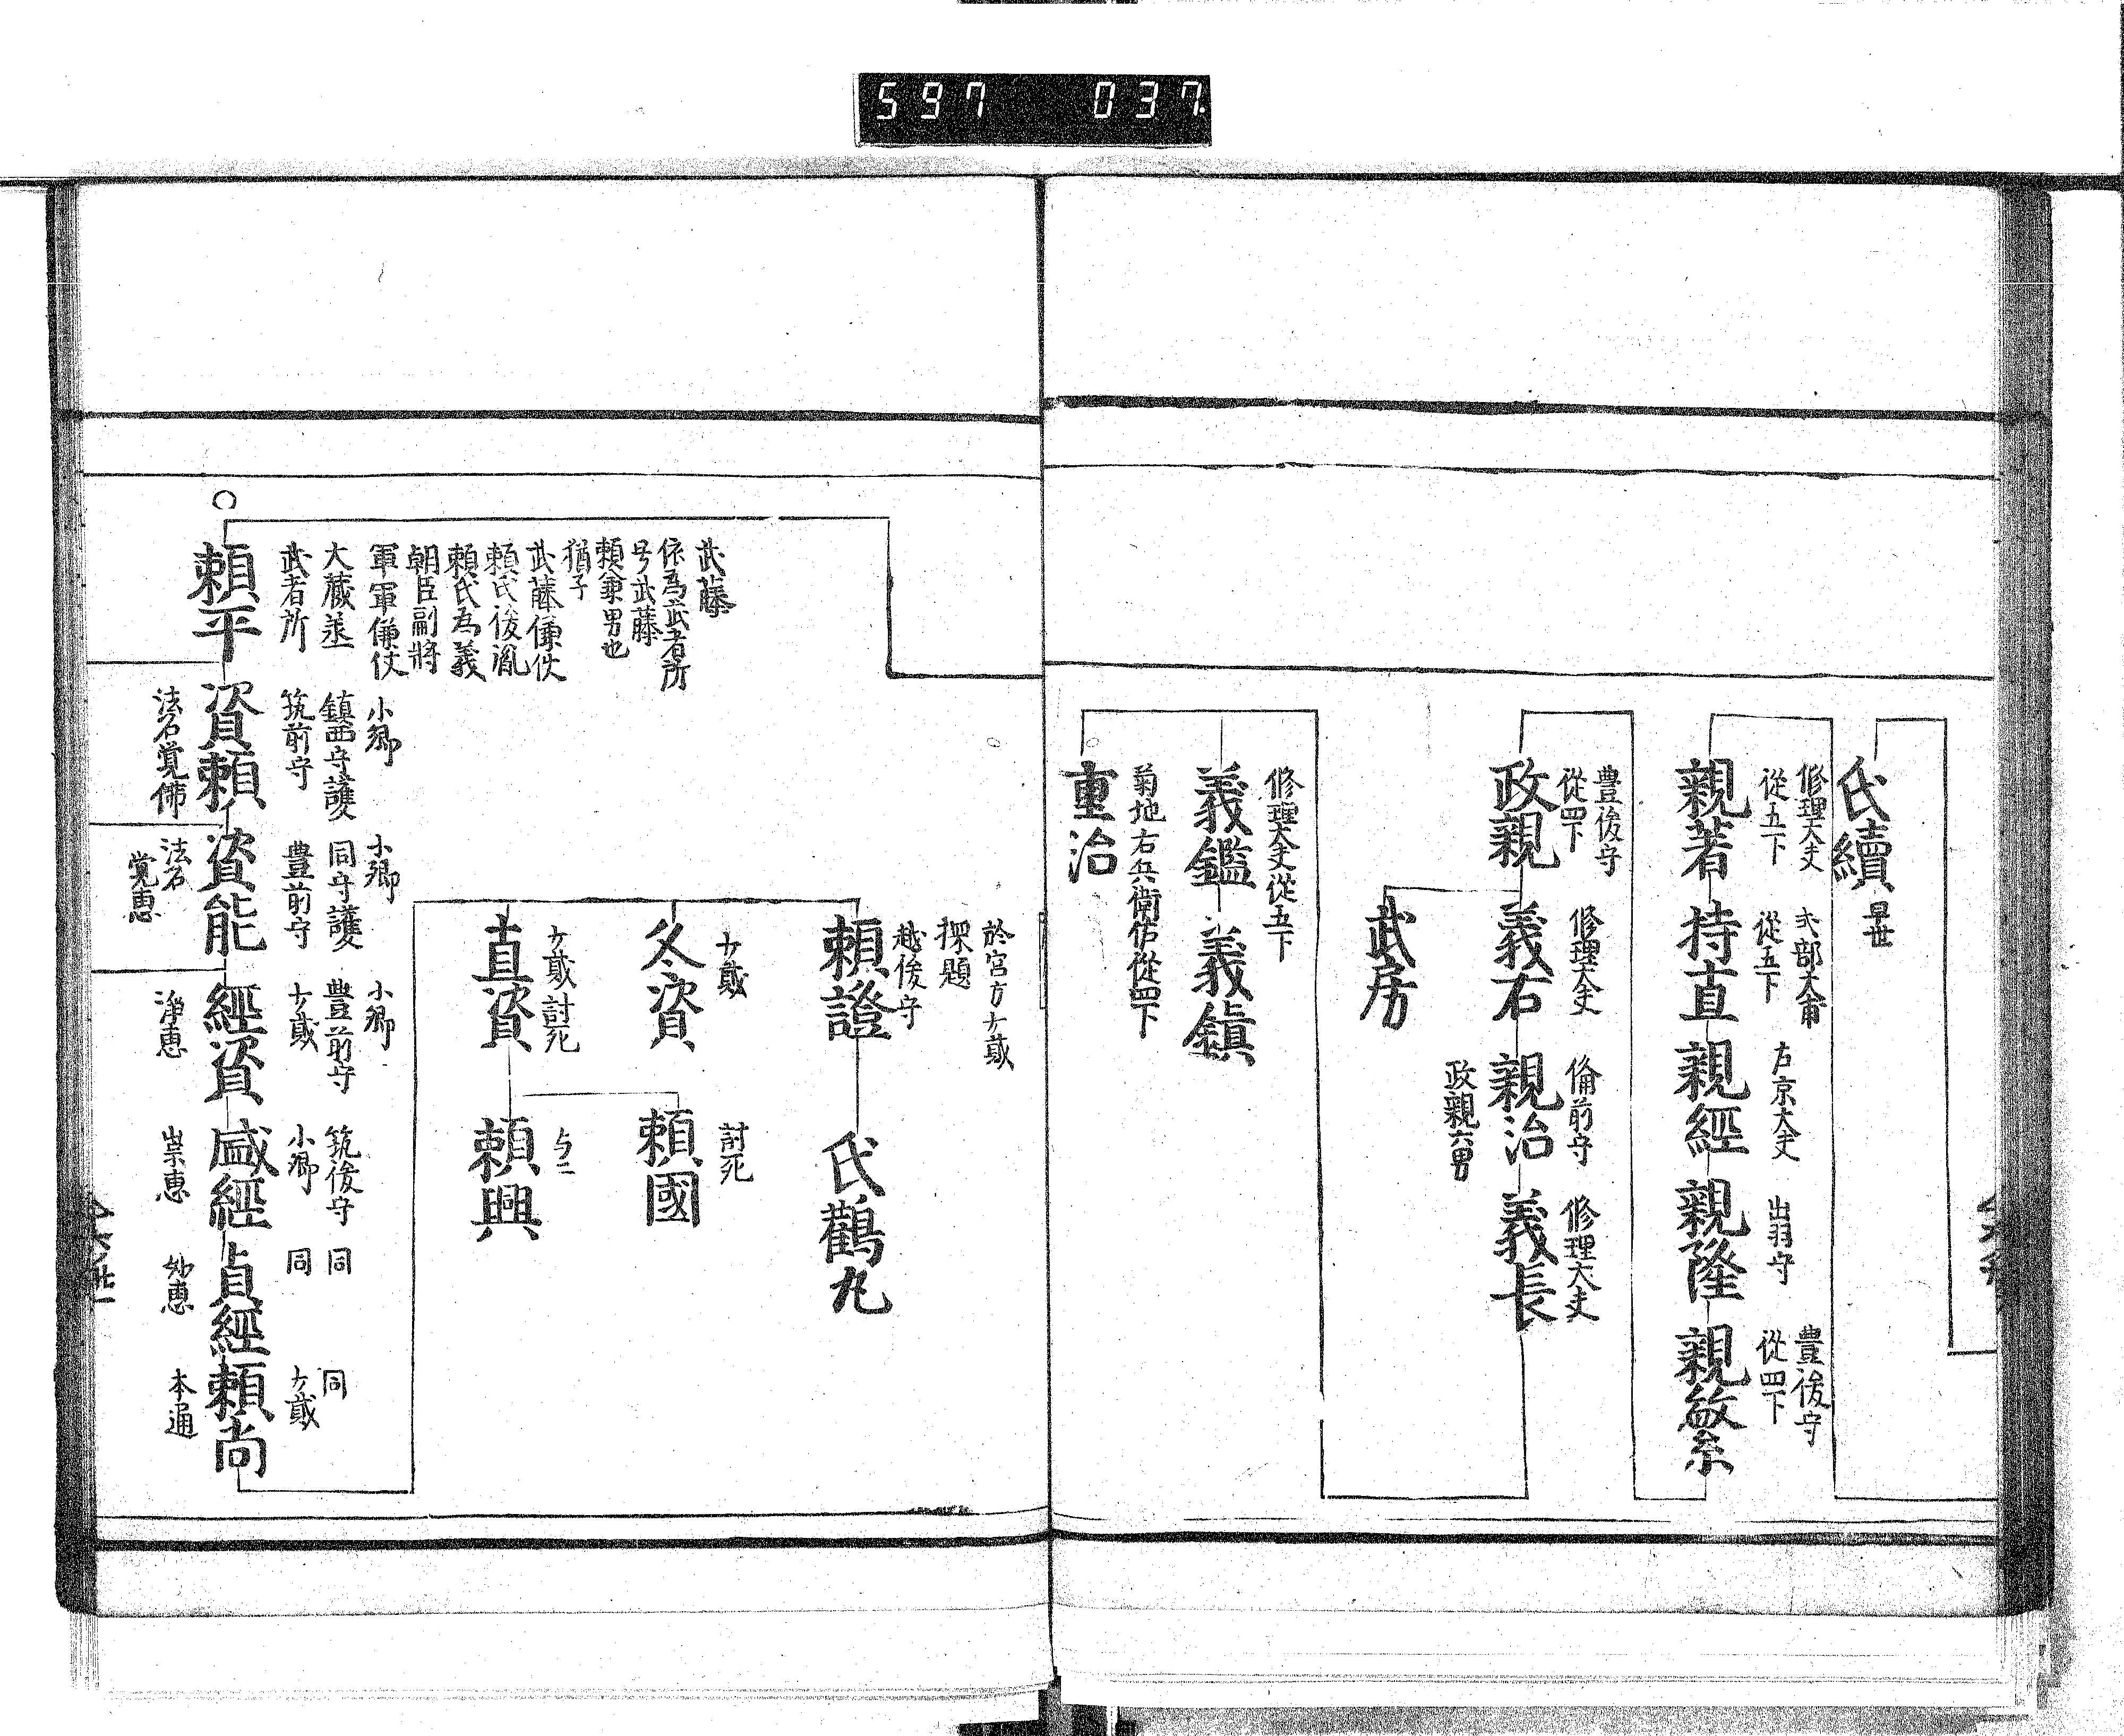 597 037
氏續
早世
修理大夫
從五下
親著
式部大甫
從五下
持直
右京大夫
親經
出羽守
親隆
豊後守
從四下
親繁
豊後守
從四下
政親
修理大夫
義右
俻前守
親治
政親六男
修理大夫
義長
武房
修理大夫從五下
義鑑
義鎮
菊地右兵衛佐從四下
重治
武藤
依為武者所
号武藤
頼兼男也
猶子
武藤傔仗
頼氏後胤
頼氏為義
朝臣副將
軍軍傔仗
大蔵丞
武者所
頼平
小卿
鎮西守護
筑前守
資頼
法名覚佛
小卿
同守護
豊前守
資能
法名
覚恵
小卿
豊前守
少貳
經資
浄恵
筑後守
小卿
盛經
崇恵
同
同
貞經
妙恵
同
少貳
頼尚
本通
於宮方少貳
探題
越後守
頼證
氏鶴丸
少貳
冬資
討死
頼國
少貳討死
直資
与二
頼興